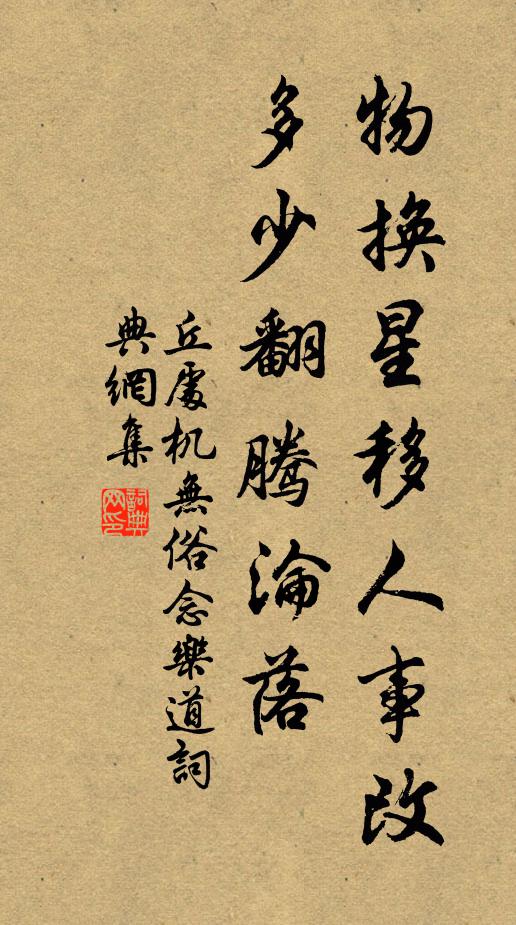 物換星移人事改
多少翻騰淪落
丘處机無俗念樂道詞
典網集
詞典網印